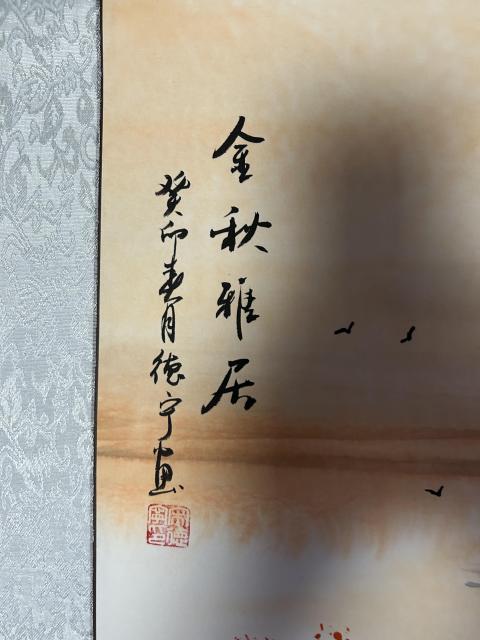 金秋雅居
癸卯春月德宁画